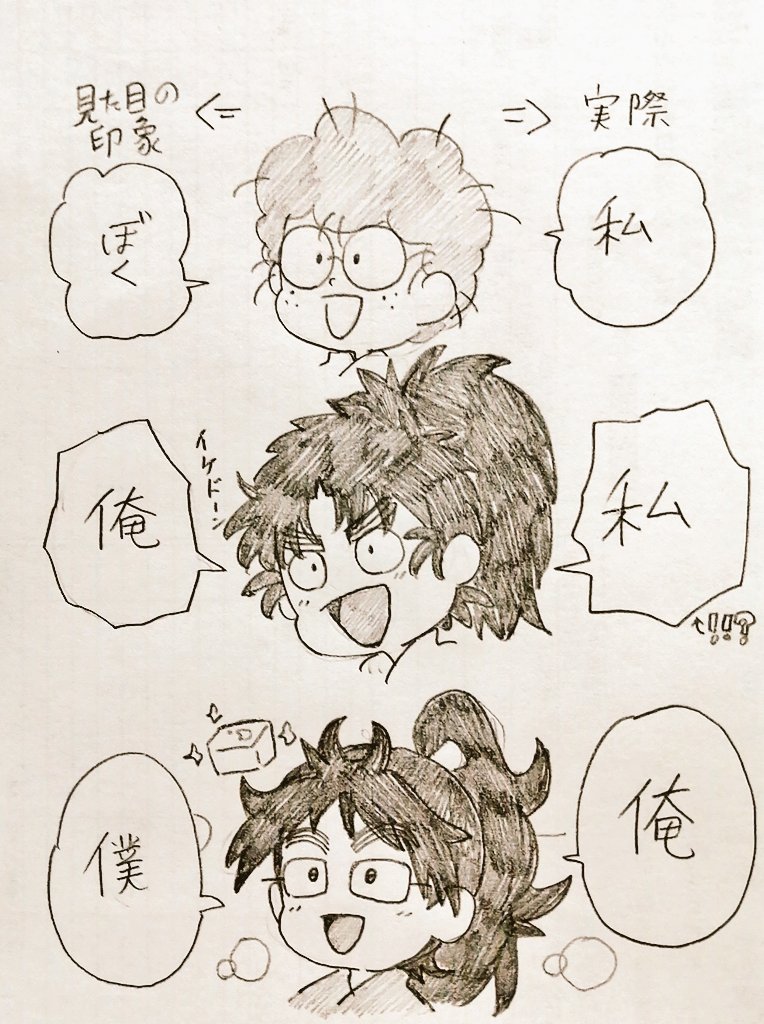 見た目の
印象
<=
=>
実際
ぼく
私
俺
イケドーン
私
↑!!?
僕
俺